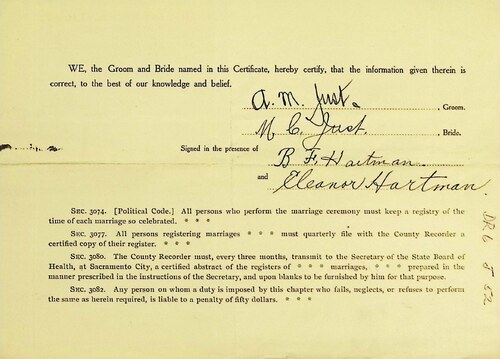 WE, the Groom and Bride named in this Certificate, hereby certify, that the information given therein is
correct, to the best of our knowledge and belief.
A. M. Just. , Groom.
M C. Just. , Bride.
Signed in the presence of
B F. Hartman.
and Eleanor Hartman.
SEC. 3074. [Political Code.] All persons who perform the marriage ceremony must keep a registry of the
time of each marriage so celebrated. * * *
SEC. 3077. All persons registering marriages * * * must quarterly file with the County Recorder a
certified copy of their register. * * *
SEC. 3080. The County Recorder must, every three months, transmit to the Secretary of the State Board of
Health, at Sacramento City, a certified abstract of the registers of * * * marriages, * * * prepared in the
manner prescribed in the instructions of the Secretary, and upon blanks to be furnished by him for that purpose.
SEC. 3082. Any person on whom a duty is imposed by this chapter who fails, neglects, or refuses to perform
the same as herein required, is liable to a penalty of fifty dollars. * * *